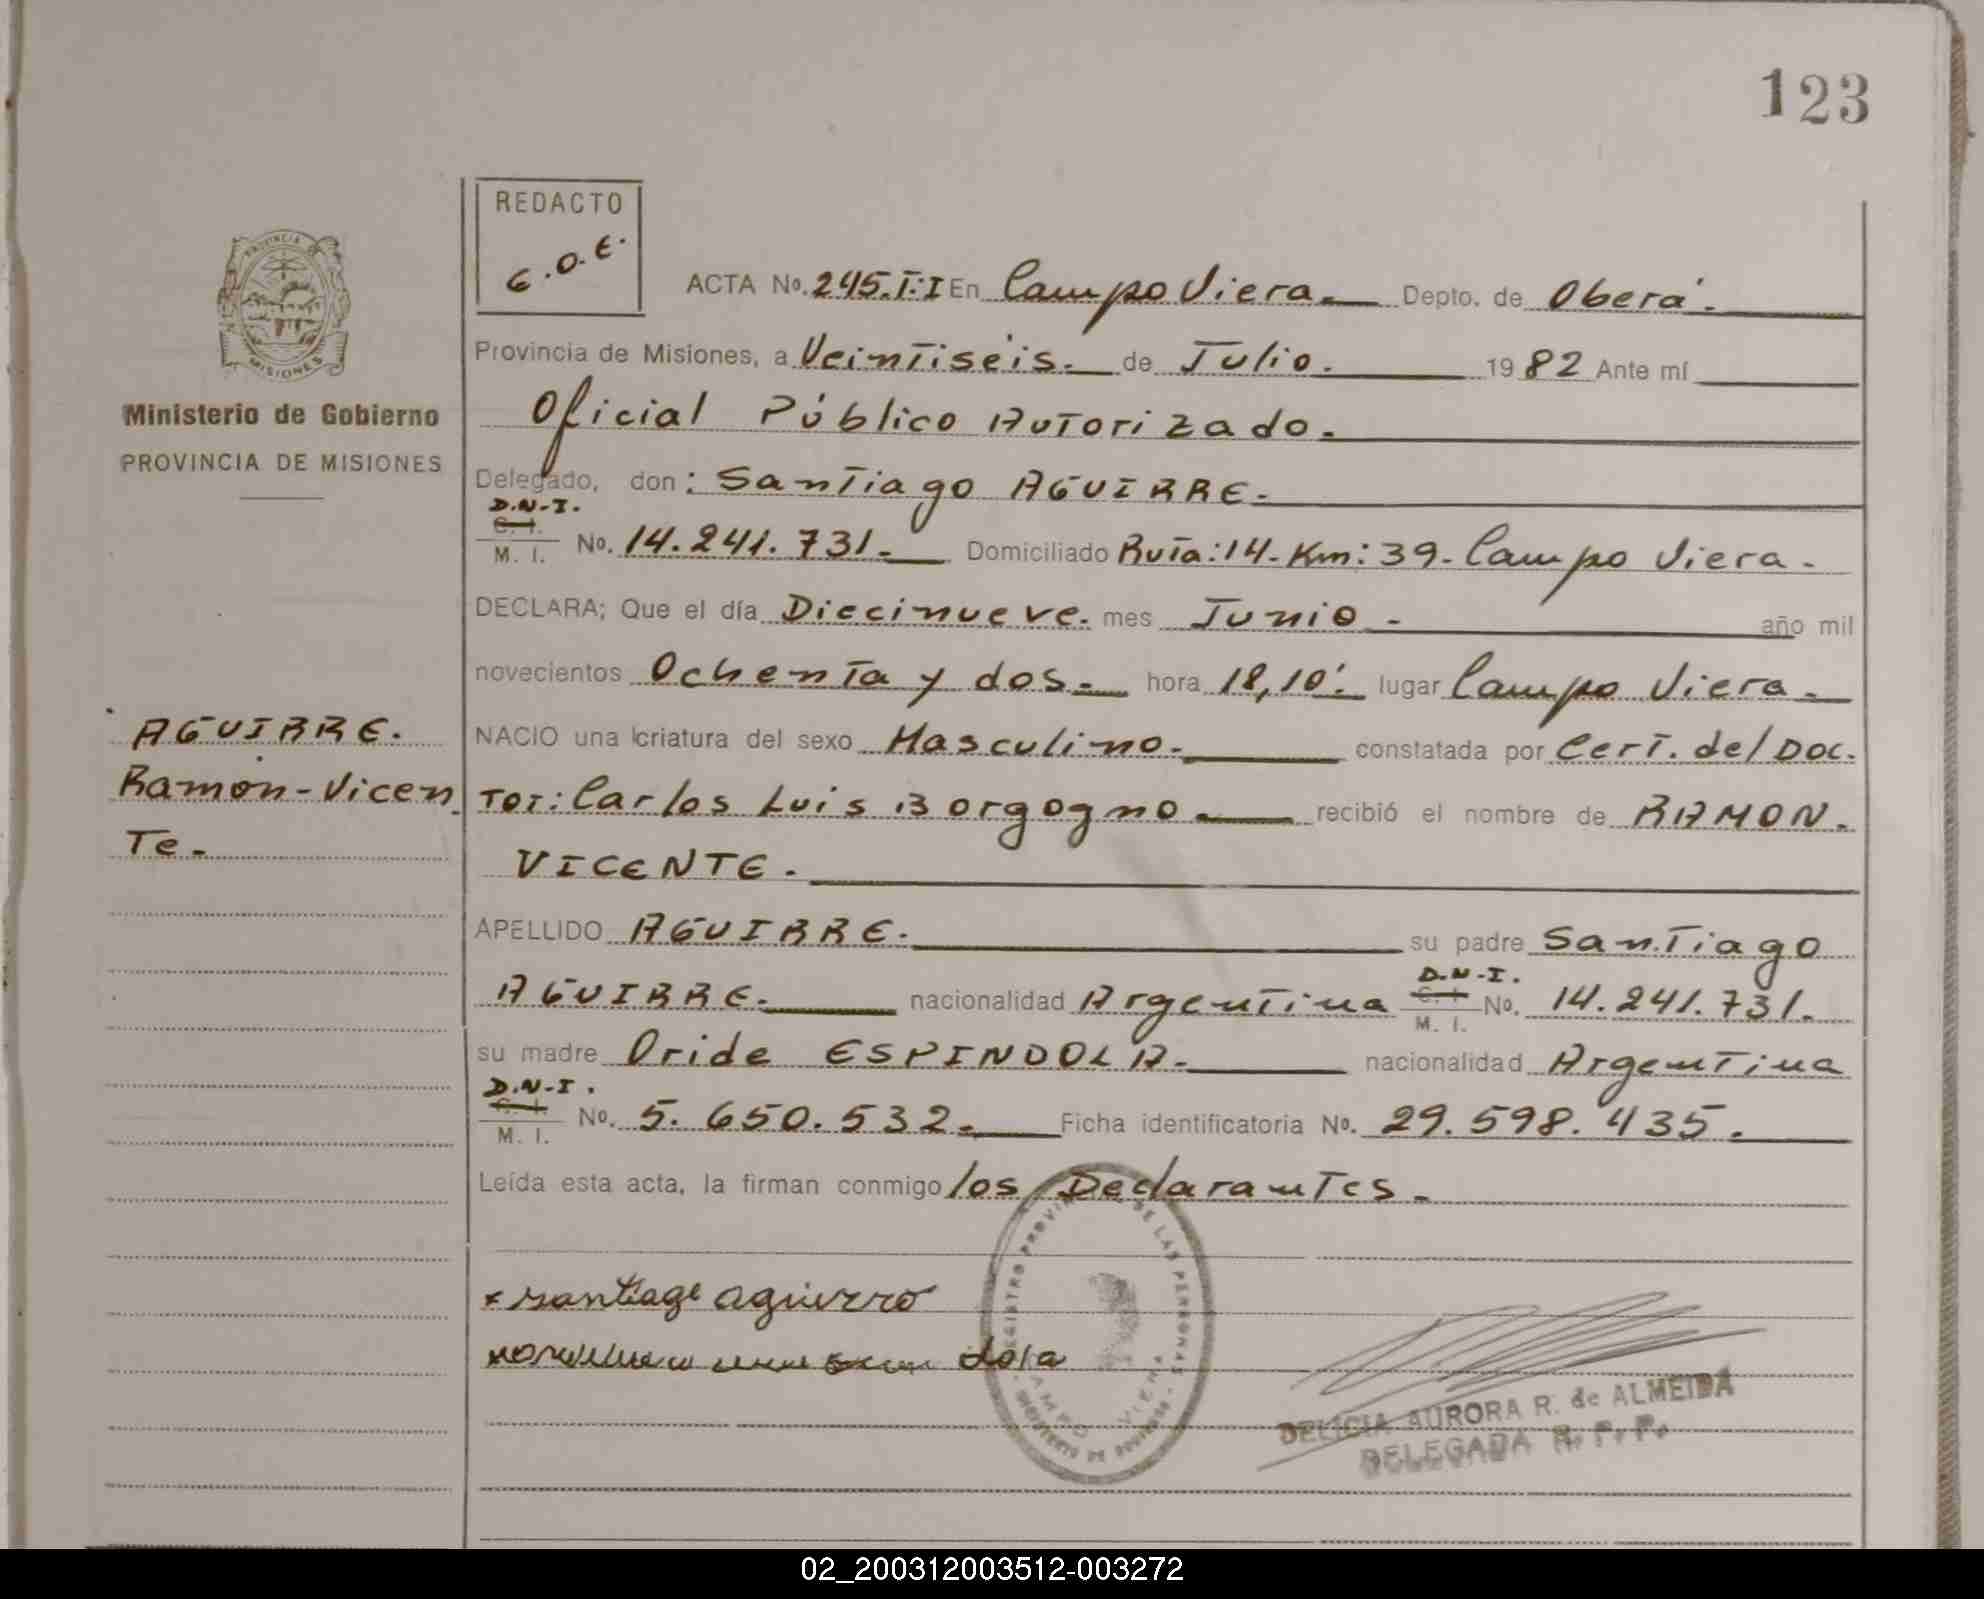 123
REDACTO
G.O.E.
ACTA No. 245.T:I En Campo Viera. Depto. de Oberá.
Provincia de Misiones, a Veintiséis. de Julio. 1982 Ante mí
Oficial Público Autorizado.
Ministerio de Gobierno
PROVINCIA DE MISIONES
Delegado, don: Santiago AGUIRRE.
D.N.I.
C. I.
M. I. No. 14.241.731. Domiciliado Ruta:14. Km:39. Campo Viera.
DECLARA; Que el día Diecinueve. mes Junio. año mil
novecientos Ochenta y dos. hora 18,10'. lugar Campo Viera.
AGUIRRE.
Ramón-Vicen
Te.
NACIO una criatura del sexo Masculino. constatada por Cert. del Doc.
Tor: Carlos Luis Borgogno recibió el nombre de RAMON.
VICENTE.
APELLIDO AGUIRRE. su padre Santiago
AGUIRRE. nacionalidad Argentina D.N.I. C. I. M. I. No. 14.241.731.
su madre Oride ESPINDOLA. nacionalidad Argentina
D.N.I.
C. I.
M. I. No. 5.650.532. Ficha identificatoria No. 29.598.435.
Leída esta acta, la firman conmigo los Declarantes.
x santiago aguirro
dola
REGISTRO PROVINCIAL DE LAS PERSONAS
CAMPO VIERA
MINISTERIO DE GOBIERNO
DELICIA AURORA R. de ALMEIDA
DELEGADA R. P. P.
PROVINCIA DE
MISIONES
02_200312003512-003272